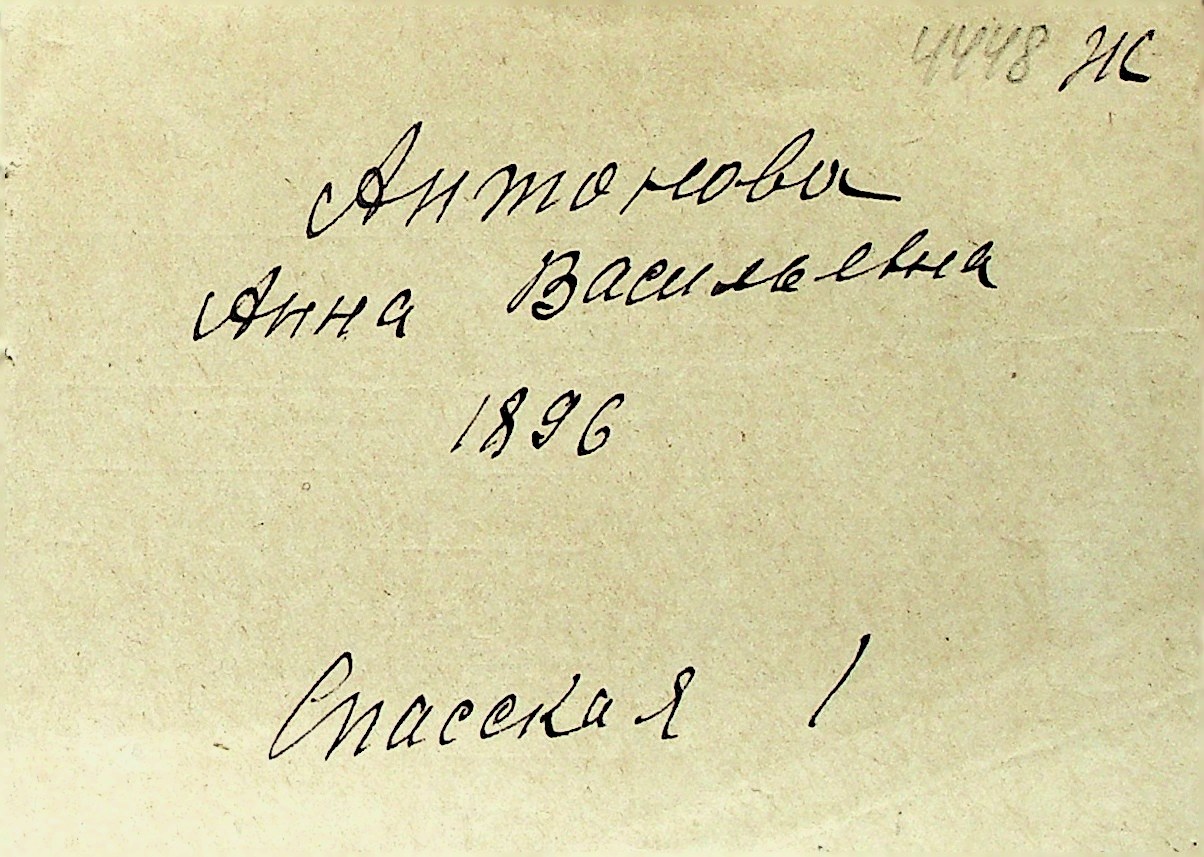 4448 Ж
Антонова
Анна Васильевна
1896
Спасская 1